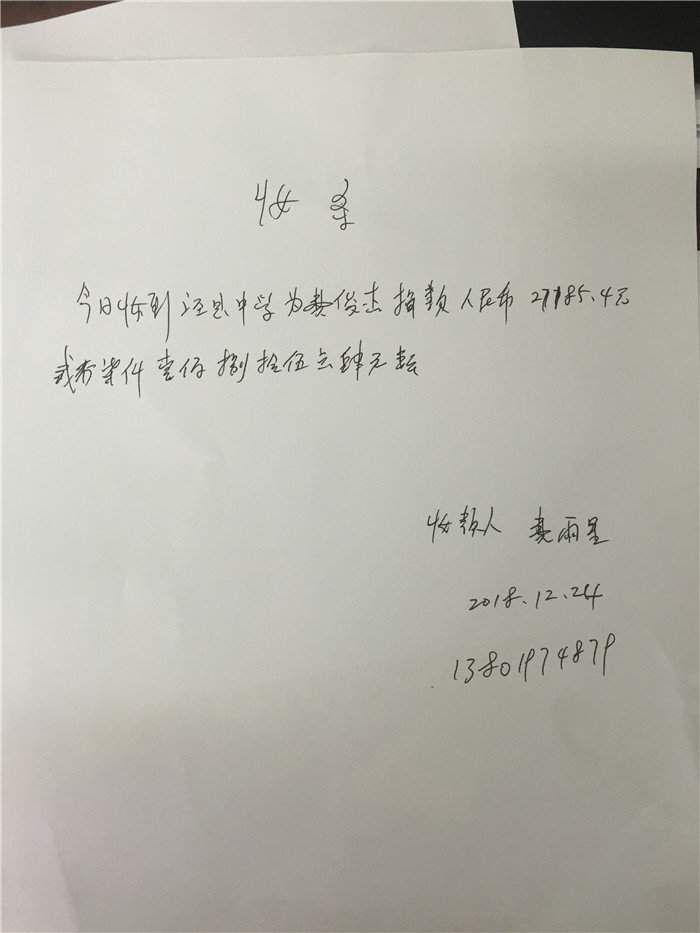 收条
今日收到泾县中学为龚俊杰捐款人民币27185.4元
贰万柒仟壹佰捌拾伍点肆元
收款人 龚雨星
2018.12.24
13801974879